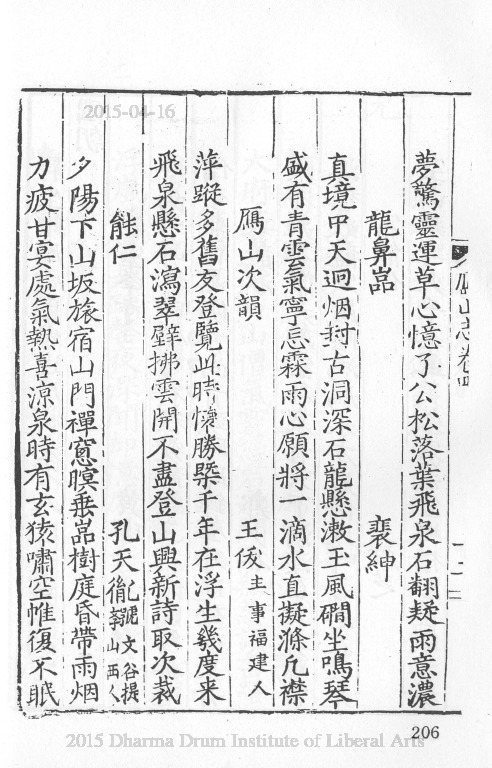 2015-04-16
鴈山志卷四
夢驚靈運草心憶了公松落葉飛泉石翻疑雨意濃
龍鼻嵓 裴紳
真境中天迥烟封古洞深石龍懸漱玉風磵坐鳴琴
盛有青雲氣寧忘霖雨心願將一滴水直擬滌凡襟
鴈山次韻 王伇主事福建人
萍蹤多舊友登覽此時懷勝槩千年在浮生幾度来
飛泉懸石瀉翠壁拂雲開不盡登山興新詩取次裁
能仁 孔天胤號文谷提學山西人
夕陽下山坂旅宿山門禪窻暝垂嵓樹庭昏帶雨烟
力疲甘宴處氣熱喜涼泉時有玄猿嘯空帷復不眠
206
2015 Dharma Drum Institute of Liberal Arts